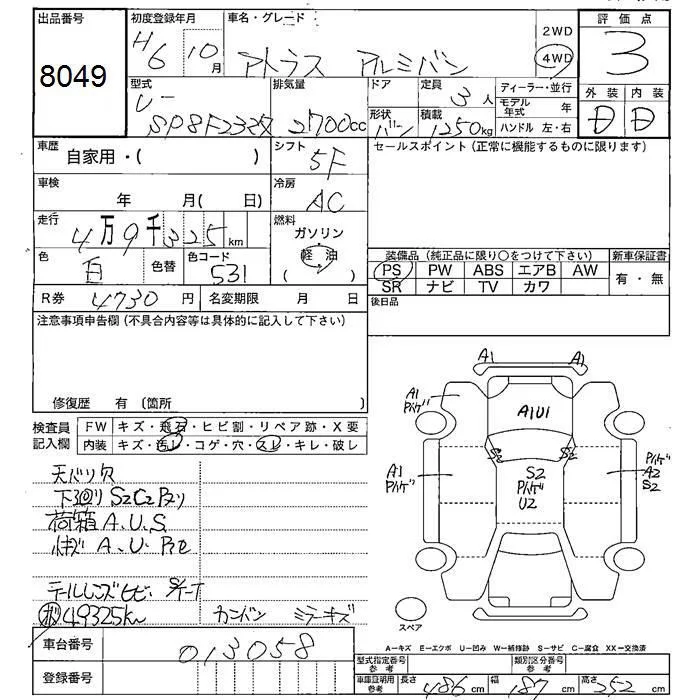 出品番号 初度登録年月 車名・グレード 評価点
8049 H6 10月 アトラス アルミバン 2WD 4WD 3
型式 排気量 ドア 定員 3人 ディーラー・並行 外装 内装
U- SP8F23改 2700cc 形状 バン 積載 1250kg モデル年式 年 ハンドル 左・右 D D
車歴 自家用・( ) シフト 5F セールスポイント(正常に機能するものに限ります)
車検 年 月( 日) 冷房 AC
走行 4万9千325km 燃料 ガソリン 軽油
色 白 色替 色コード 531 装備品(純正品に限り○をつけて下さい) 新車保証書
PS PW ABS エアB AW 有・無
SR ナビ TV カワ
R券 4730円 名変期限 月 日 後日品
注意事項申告欄(不具合内容等は具体的に記入して下さい)
修復歴 有 (箇所 )
検査員記入欄 FW キズ・飛石・ヒビ割・リペア跡・X要
内装 キズ・汚レ・コゲ・穴・スレ・キレ・破レ
天バリ欠
下回り S2C2 Pヌリ
荷箱 A.U.S
A.U.
テールレンズヒビ
49325km カンバン ミラーキズ
A1 A1
A1 バケ
A1U1
S2 S2
A1 バケ
S2 Pバケ U2
Pバケ A2 S2
スペア
A―キズ E―エクボ U―凹み W―補修跡 S―サビ C―腐食 XX―交換済
車台番号 013058
登録番号
型式指定番号 参考 類別区分番号 参考
車庫証明用 参考 長さ 486cm 幅 187cm 高さ 252cm